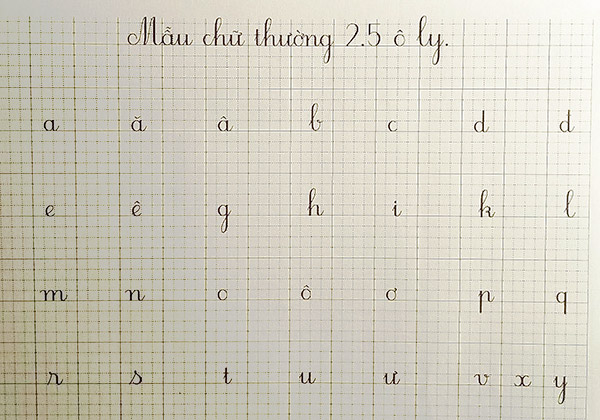 Mẫu chữ thường 2.5 ô ly.
a ă â b c d đ
e ê g h i k l
m n o ô ơ p q
r s t u ư v x y